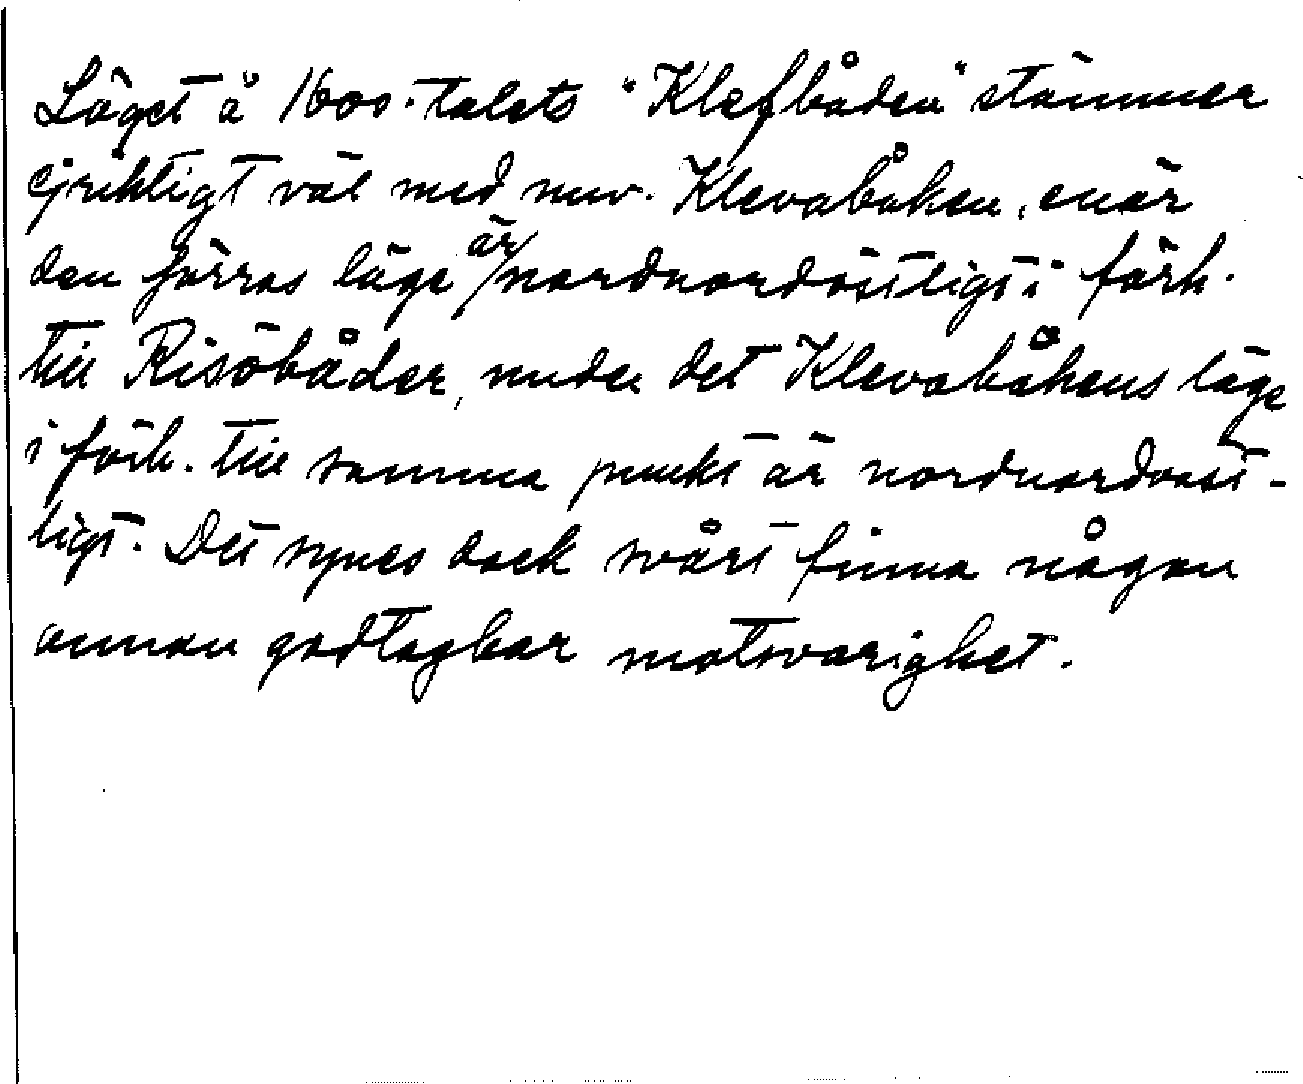 Läget å 1600-talets "Klefbåden" stämmer
ej riktigt väl med nuv. Klevabåken, enär
den förras läge är nordnordöstligt i förh.
till Risöbåder, medan det Klevabåkens läge
i förh. till samma punkt är nordnordväst-
ligt. Det synes dock svårt finna någon
annan godtagbar motsvarighet.